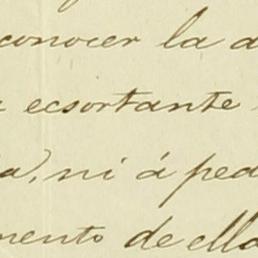 conocer la a
ecsortante
a), ni á ped
mento de ella